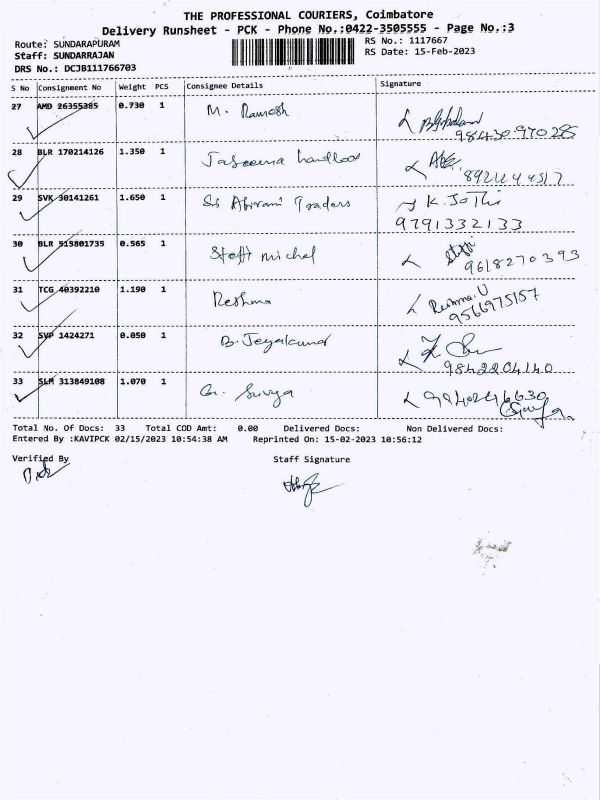 THE PROFESSIONAL COURIERS, Coimbatore
Delivery Runsheet - PCK - Phone No.:0422-3505555 - Page No.:3
Route: SUNDARAPURAM RS No.: 1117667
Staff: SUNDARRAJAN RS Date: 15-Feb-2023
DRS No.: DCJB111766703
S No Consignment No Weight PCS Consignee Details Signature
27 AMD 26355385 0.730 1 M. Ramesh
98430 970 285
28 BLR 170214126 1.350 1 Jaseema
29 SVK 30141261 1.650 1 Sri Abirami Traders K. Jothi
9791332133
30 BLR 515801735 0.565 1 Steffi michel
9618270393
31 TCG 40392210 1.190 1 Reshma Reshma. U
9566975157
32 SVP 1424271 0.050 1 B. Jeyakumar
9842204140
33 SLM 313849108 1.070 1 G. Surya
Surya
Total No. Of Docs: 33 Total COD Amt: 0.00 Delivered Docs: Non Delivered Docs:
Entered By :KAVIPCK 02/15/2023 10:54:38 AM Reprinted On: 15-02-2023 10:56:12
Verified By Staff Signature